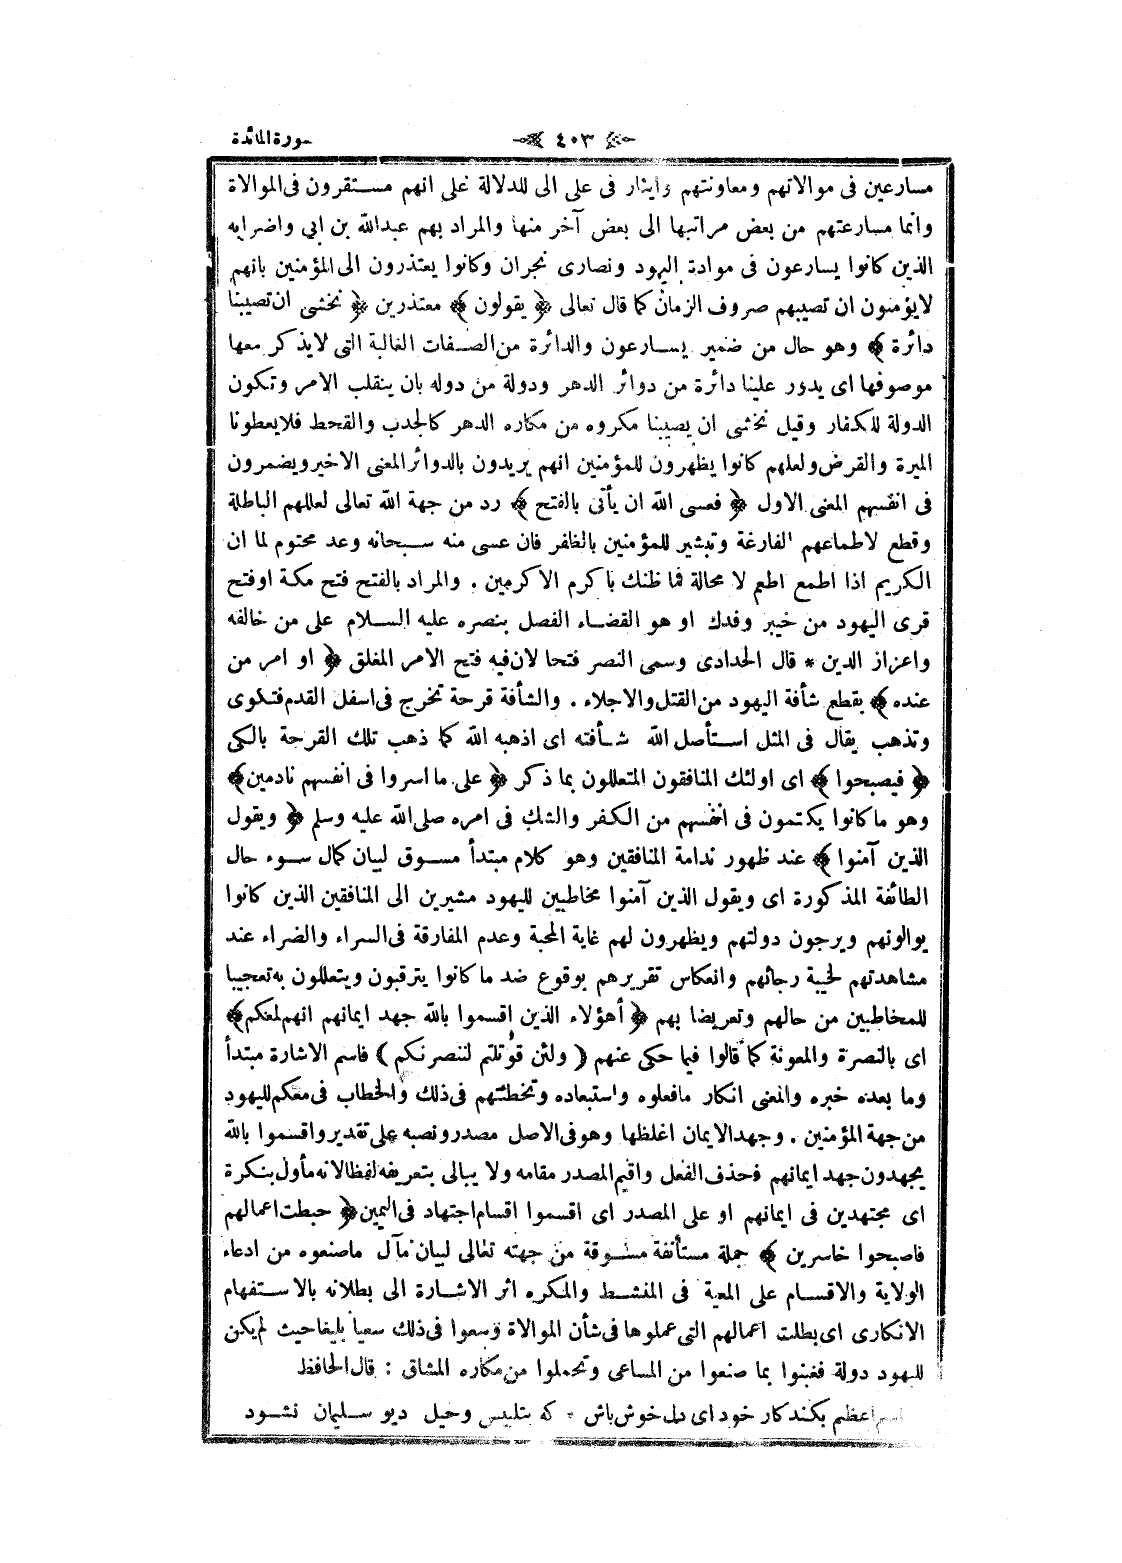 سورة المائدة
٤٠٣
مسارعين فى موالاتهم ومعاونتهم وايثار فى على الى للدلالة على انهم مستقرون فى الموالاة
وانما مسارعتهم من بعض مراتبها الى بعض آخر منها والمراد بهم عبدالله بن ابي واضرابه
الذين كانوا يسارعون فى موادة اليهود ونصارى نجران وكانوا يعتذرون الى المؤمنين بانهم
لايؤمنون ان تصيبهم صروف الزمان كما قال تعالى ﴿ يقولون ﴾ معتذرين ﴿ نخشى ان تصيبنا
دائرة ﴾ وهو حال من ضمير يسارعون والدائرة من الصفات الغالبة التى لايذكر معها
موصوفها اى يدور علينا دائرة من دوائر الدهر ودولة من دوله بان ينقلب الامر وتكون
الدولة للكفار وقيل نخشى ان يصيبنا مكروه من مكاره الدهر كالجدب والقحط فلايعطونا
الميرة والقرض ولعلهم كانوا يظهرون للمؤمنين انهم يريدون بالدوائر المعنى الاخير ويضمرون
فى انفسهم المعنى الاول ﴿ فعسى الله ان يأتى بالفتح ﴾ رد من جهة الله تعالى لعللهم الباطلة
وقطع لاطماعهم الفارغة وتبشير للمؤمنين بالظفر فان عسى منه سبحانه وعد محتوم لما ان
الكريم اذا اطمع اطعم لا محالة فما ظنك باكرم الاكرمين . والمراد بالفتح فتح مكة او فتح
قرى اليهود من خيبر وفدك او هو القضاء الفصل بنصره عليه السلام على من خالفه
واعزاز الدين * قال الحدادى وسمى النصر فتحا لان فيه فتح الامر المغلق ﴿ او امر من
عنده ﴾ يقطع شأفة اليهود من القتل والاجلاء . والشأفة قرحة تخرج فى اسفل القدم فتكوى
وتذهب يقال فى المثل استأصل الله شأفته اى اذهبه الله كما ذهب تلك القرحة بالكى
﴿ فيصبحوا ﴾ اى اولئك المنافقون المتعللون بما ذكر ﴿ على ما اسروا فى انفسهم نادمين ﴾
وهو ماكانوا يكتمون فى انفسهم من الكفر والشك فى امره صلى الله عليه وسلم ﴿ ويقول
الذين آمنوا ﴾ عند ظهور ندامة المنافقين وهو كلام مبتدأ مسوق لبيان كمال سوء حال
الطائفة المذكورة اى ويقول الذين آمنوا مخاطبين لليهود مشيرين الى المنافقين الذين كانوا
يوالونهم ويرجون دولتهم ويظهرون لهم غاية المحبة وعدم المفارقة فى السراء والضراء عند
مشاهدتهم لخيبة رجائهم وانعكاس تقريرهم بوقوع ضد ماكانوا يترقبون ويتعللون به تعجيبا
للمخاطبين من حالهم وتعريضا بهم ﴿ أهؤلاء الذين اقسموا بالله جهد ايمانهم انهم لمعكم ﴾
اى بالنصرة والمعونة كما قالوا فيما حكى عنهم ( ولئن قوتلتم لننصرنكم ) فاسم الاشارة مبتدأ
وما بعده خبره والمعنى انكار مافعلوه واستبعاده وتخطئتهم فى ذلك والخطاب فى معكم لليهود
من جهة المؤمنين . وجهد الايمان اغلظها وهو فى الاصل مصدر ونصبه على تقدير واقسموا بالله
يجهدون جهد ايمانهم فحذف الفعل واقيم المصدر مقامه ولا يبالى بتعريفه لفظا لانه مأول بنكرة
اى مجتهدين فى ايمانهم او على المصدر اى اقسموا اقسام اجتهاد فى اليمين ﴿ حبطت اعمالهم
فاصبحوا خاسرين ﴾ جملة مستأنفة مسوقة من جهته تعالى لبيان مآل ماصنعوه من ادعاء
الولاية والاقسام على المعية فى المنشط والمكره اثر الاشارة الى بطلانه بالاستفهام
الانكارى اى بطلت اعمالهم التى عملوها فى شأن الموالاة وسعوا فى ذلك سعيا بليغا حيث لم يكن
لليهود دولة فغبنوا بما صنعوا من المساعى وتحملوا من مكاره المشاق : قال الحافظ
اعظم بكند كار خود اى دل خوش باش * كه بتلبيس وحيل ديو سليمان نشود